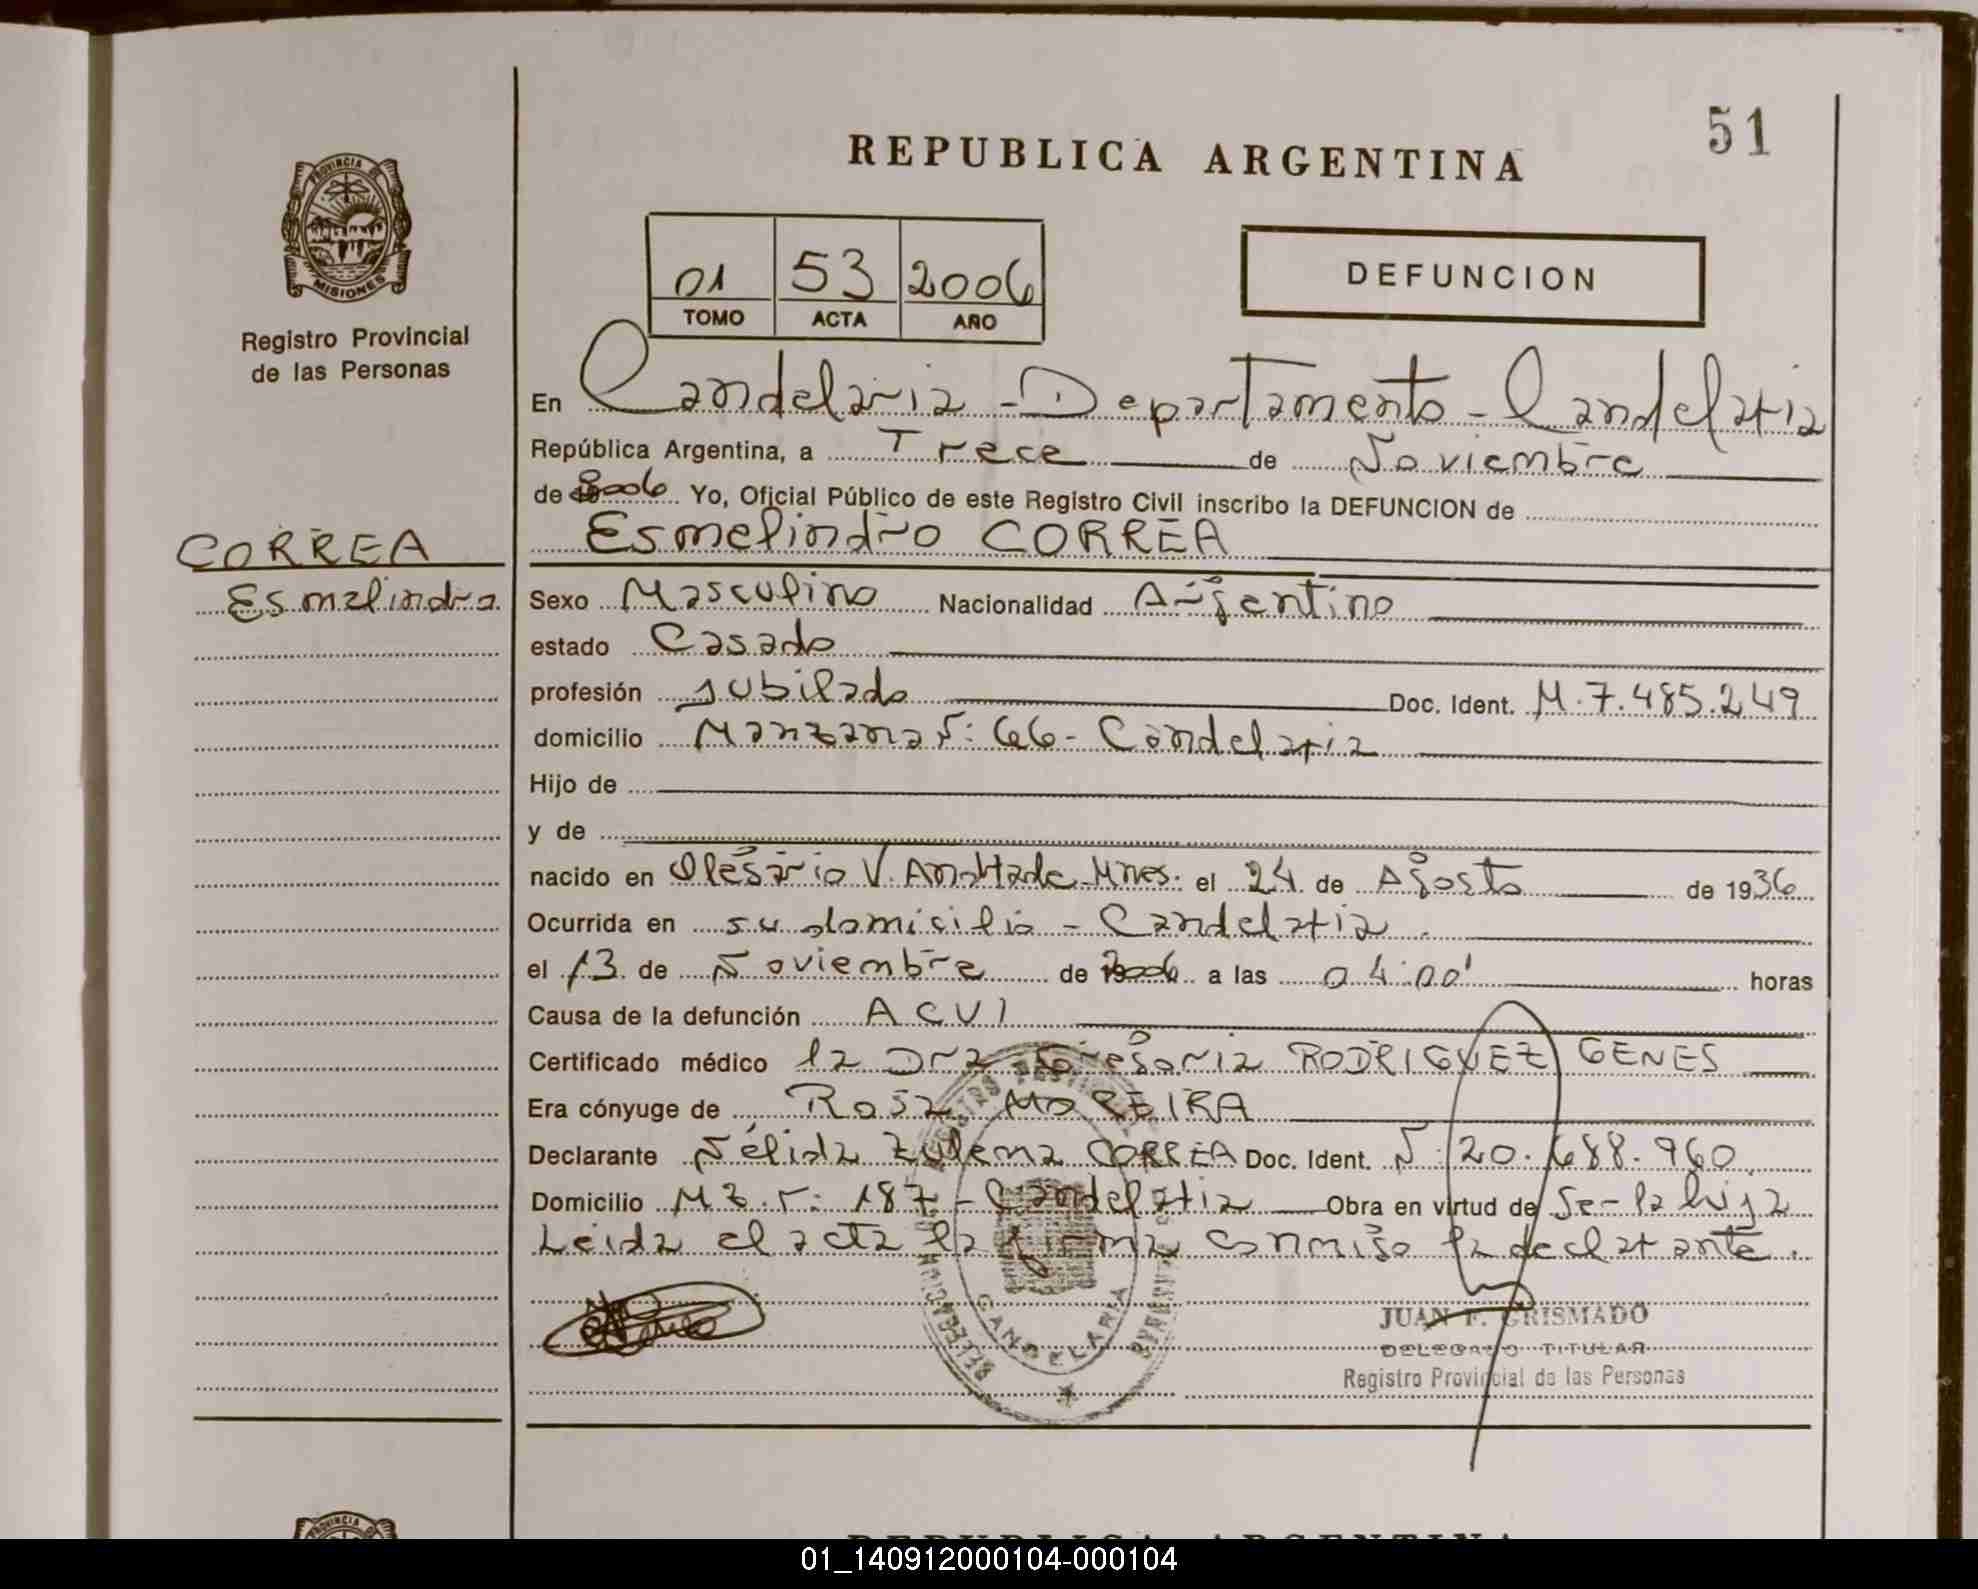 51
REPUBLICA ARGENTINA
PROVINCIA DE
MISIONES
Registro Provincial
de las Personas
01 53 2006
TOMO ACTA AÑO
DEFUNCION
En Candelaria - Departamento - Candelaria
República Argentina, a Trece de Noviembre
de 2006 Yo, Oficial Público de este Registro Civil inscribo la DEFUNCION de
CORREA
Esmelindro
Esmelindro CORREA
Sexo Masculino Nacionalidad Argentino
estado Casado
profesión Jubilado Doc. Ident. M.7.485.249
domicilio Manzana N: 66 - Candelaria
Hijo de
y de
nacido en Olegario V. Andrade Mnes. el 24 de Agosto de 1936
Ocurrida en su domicilio - Candelaria.
el 13 de Noviembre de 2006 a las 04:00' horas
Causa de la defunción ACVI
Certificado médico la Dra Gregoria RODRIGUEZ GENES
Era cónyuge de Rosa MOREIRA
Declarante Nélida Zulema CORREA Doc. Ident. N: 20.688.960.
Domicilio Mz. N: 187 - Candelaria Obra en virtud de Ser la hija
Leida el acta la firma conmigo la declarante.
CANDELARIA
JUAN F. GRISMADO
DELEGADO TITULAR
Registro Provincial de las Personas
REPUBLICA ARGENTINA
01_140912000104-000104